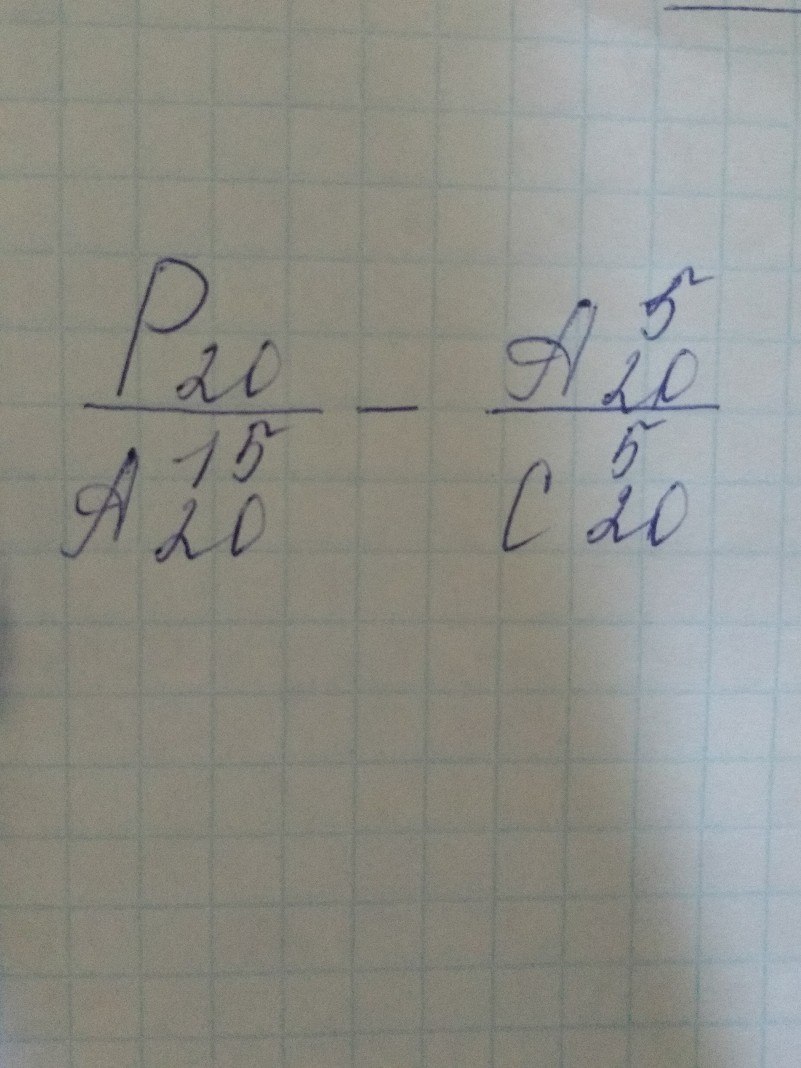 P₂₀ / A₂₀¹⁵ − A₂₀⁵ / C₂₀⁵